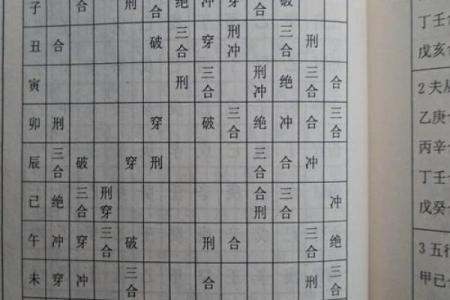 子 合 刑合 绝 冲 穿 三合 破
丑 合 破 三合 穿 刑冲 三合 刑
寅 刑 三合 刑冲 绝 三合 合
卯 刑 穿 破 三合 绝 冲 合 三合
辰 三合 破 穿 刑 三合 合 冲
己 绝 三合 刑穿 合刑 三合 冲
午 冲 穿 三合 破 刑 合 三合 绝
未 穿 冲 三合 合 刑 三合
丁壬
戊亥
2夫从
乙庚
丙辛
丁壬
戊癸
3五行
甲己